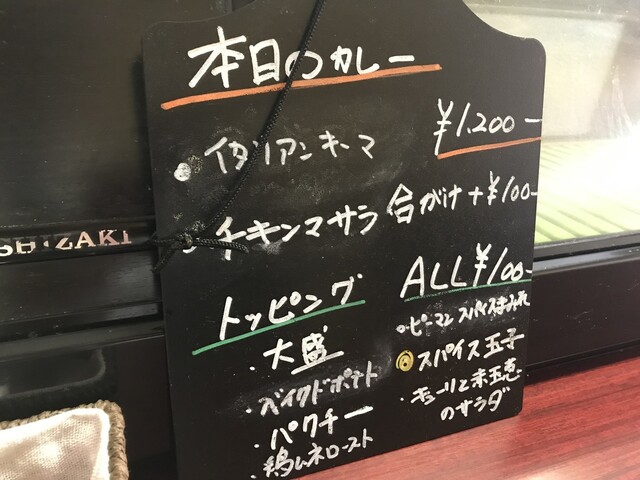 本日のカレー
¥1,200-
・イタリアンキーマ
・チキンマサラ 合がけ+¥100-
トッピング ALL ¥100-
・大盛
・ベイクドポテト
・パクチー
・鶏ムネロースト
・ピーマンスパイスまみれ
・スパイス玉子
・キューリと赤玉葱
のサラダ
SHIZAKI